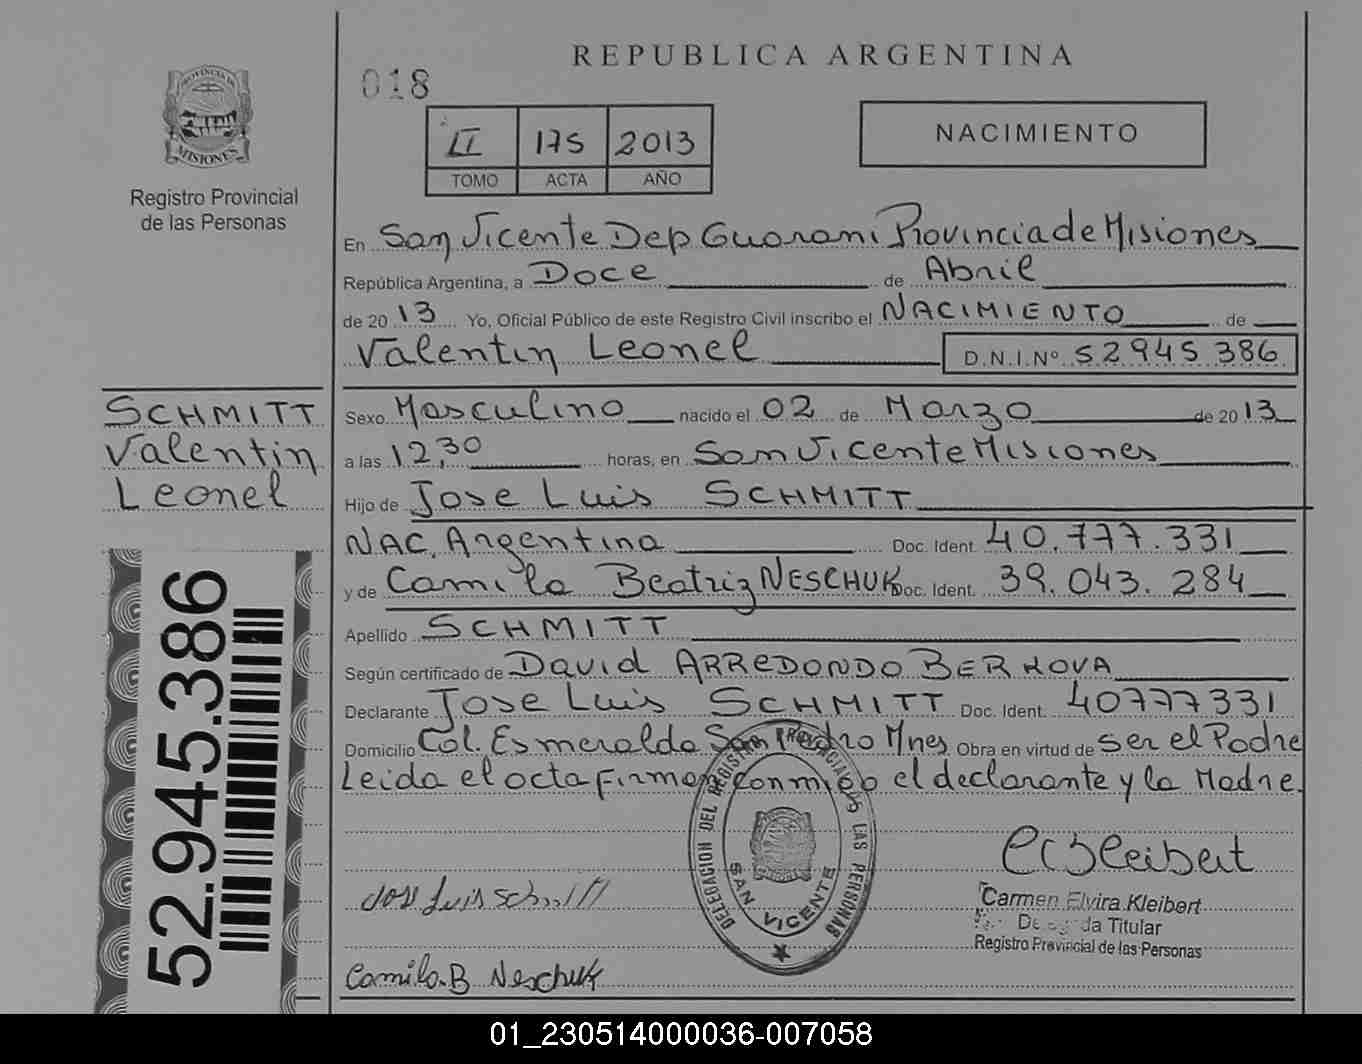 REPUBLICA ARGENTINA
018
PROVINCIA DE
MISIONES
Registro Provincial
de las Personas
II 175 2013
TOMO ACTA AÑO
NACIMIENTO
En San Vicente Dep Guarani Provincia de Misiones
República Argentina, a Doce de Abril
de 2013 Yo, Oficial Público de este Registro Civil inscribo el NACIMIENTO de
Valentin Leonel D.N.I.Nº 52.945.386
SCHMITT
Valentin
Leonel
Sexo Masculino nacido el 02 de Marzo de 2013
a las 12,30 horas, en San Vicente Misiones
Hijo de Jose Luis SCHMITT
NAC. Argentina Doc. Ident. 40.777.331
y de Camila Beatriz NESCHUK Doc. Ident. 39.043.284
Apellido SCHMITT
Según certificado de David ARREDONDO BERNOVA
Declarante Jose Luis SCHMITT Doc. Ident. 40777331
Domicilio Col. Esmeralda San Pedro Mnes Obra en virtud de ser el Padre
Leida el acta firman conmigo el declarante y la Madre.
52.945.386
DELEGACION DEL REGISTRO PROVINCIAL DE LAS PERSONAS
SAN VICENTE
Jose Luis Schmitt
Camila.B Neschuk
Carmen Elvira Kleibert
Titular
Registro Provincial de las Personas
01_230514000036-007058